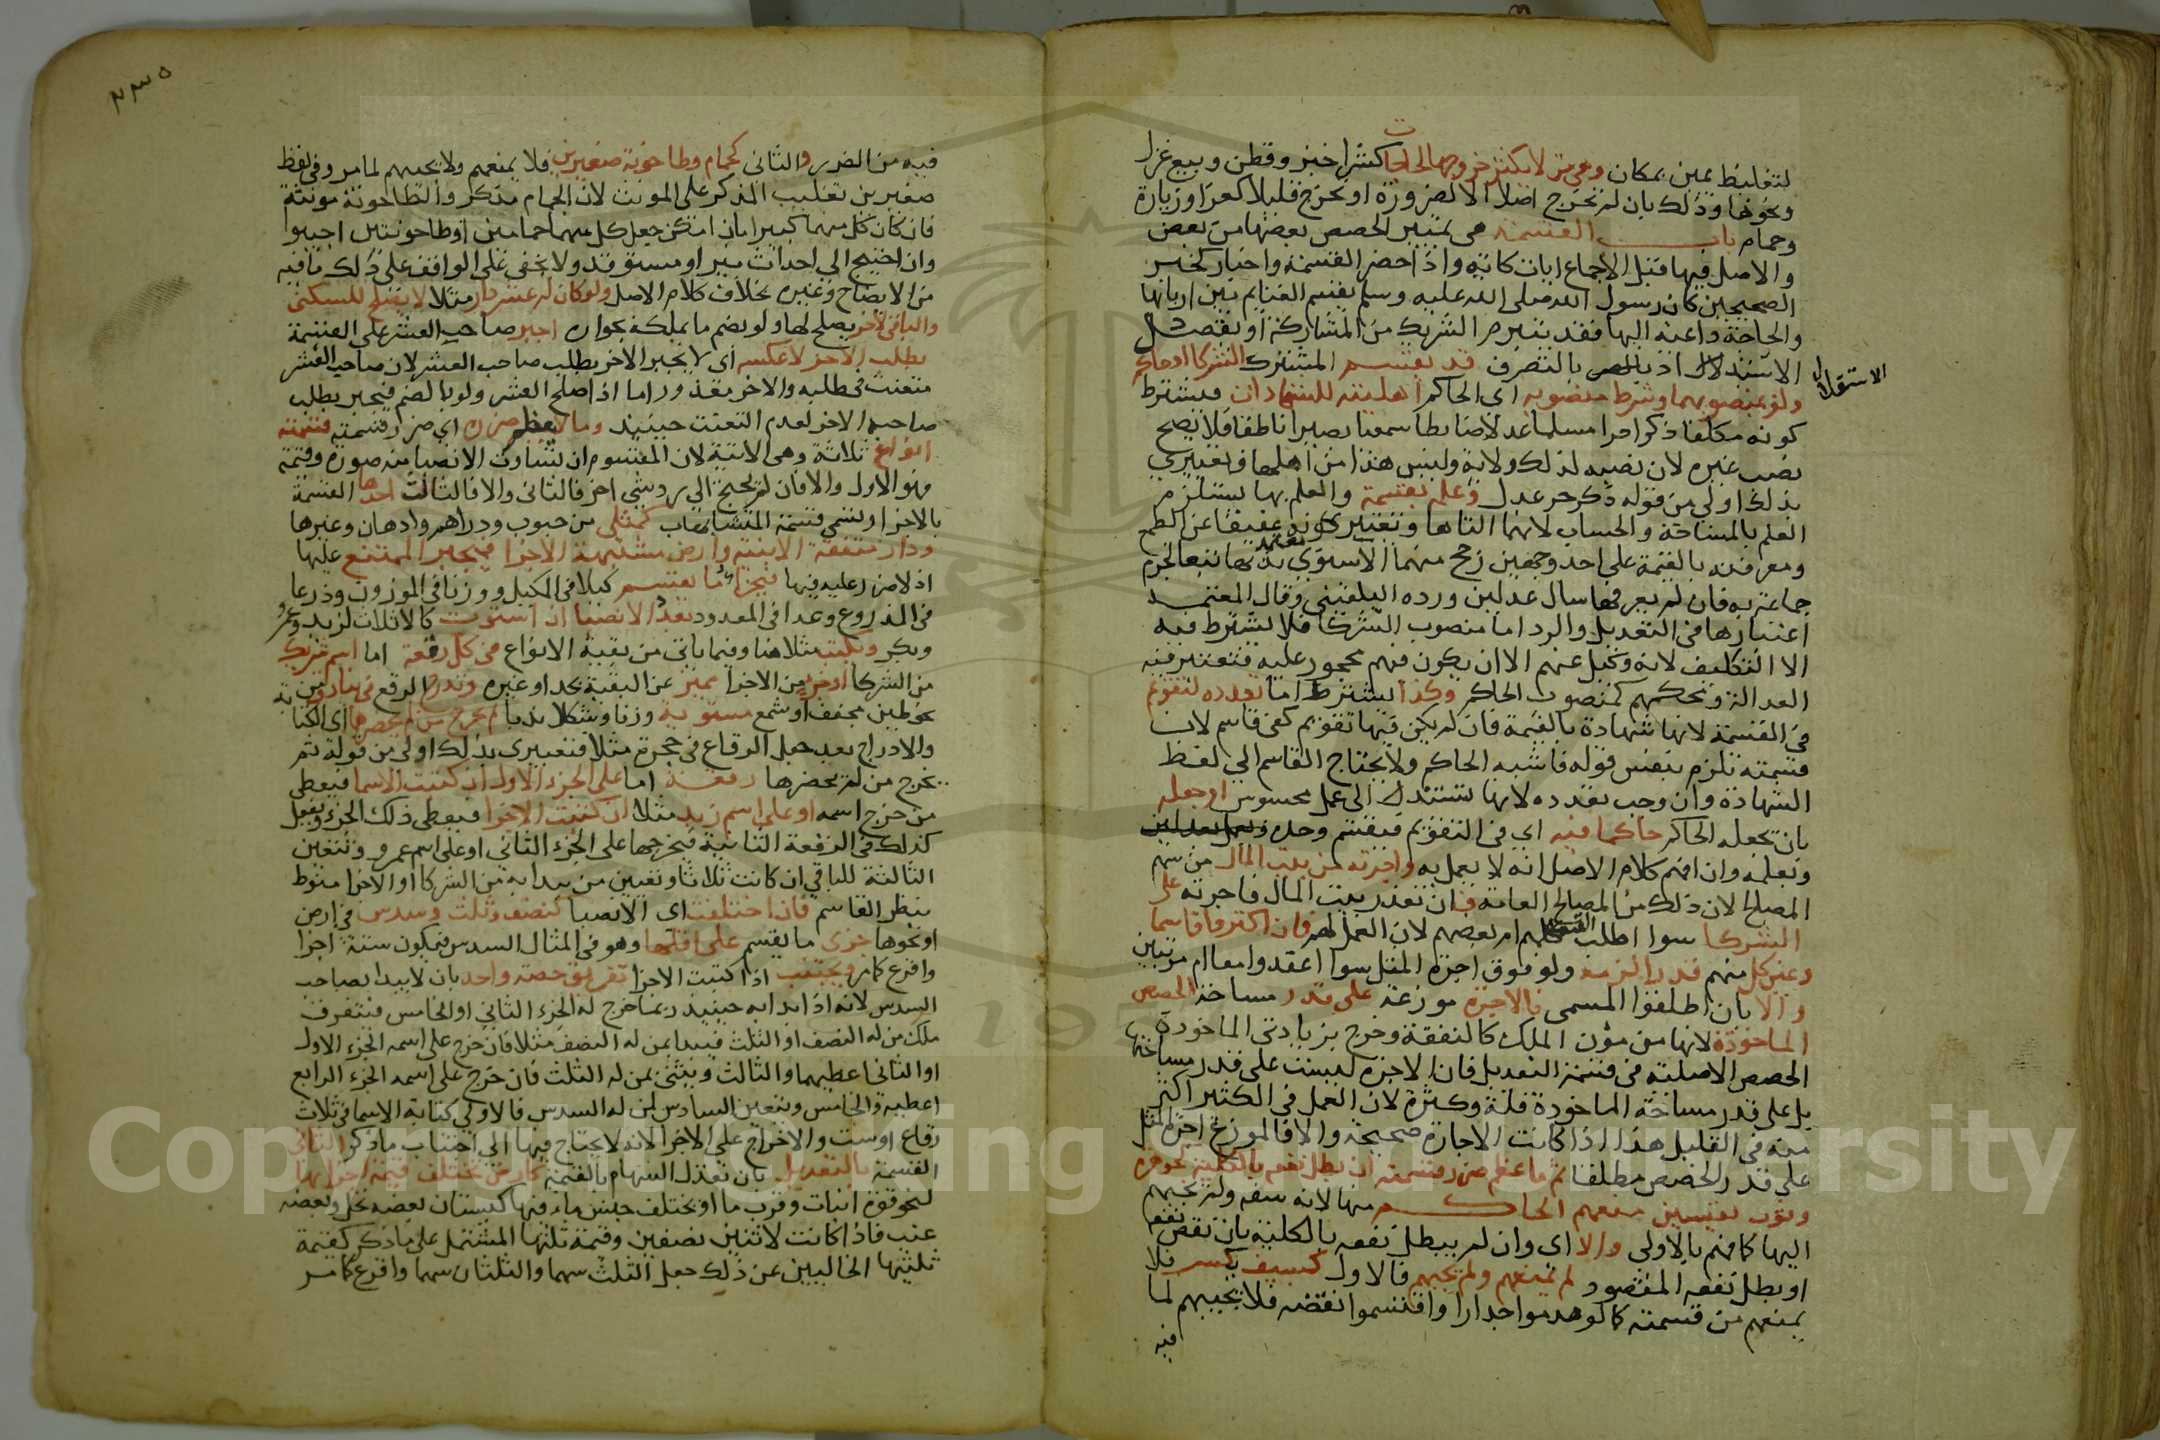 لتغليظ يمين بمكان وهي من لا يكثر خروجها لحاجات كشرا خبز وقطن وبيع غزل
ونحوها وذلك بان لم تخرج اصلا الا لضرورة او تخرج قليلا كعزا وزيارة
وحمام باب القسمة هي تمييز الحصص بعضها من بعض
والاصل فيها قبل الاجماع ايات كاية واذا حضر القسمة واخبار كخبر
الصحيحين كان رسول الله صلى الله عليه وسلم يقسم الغنايم بين اربابها
والحاجة داعية اليها فقد يتبرم الشريك من المشاركة او يقصد
الاستبداد بالتصرف قد يقسم المشترك الشركا او حاكم
الاستقلال
ولو بمنصوبهما وشرط منصوبه اي الحاكم اهليته للشهادات فيشترط
كونه مكلفا ذكرا حرا مسلما عدلا ضابطا سميعا بصيرا ناطقا فلا يصح
نصب غيره لان نصبه لذلك ولاية وليس هذا من اهلها وتعبيري
بذلك اولى من قوله ذكر حر عدل وعلمه بقسمة والعلم بها يستلزم
العلم بالمساحة والحساب لانهما التاها وتعتبر كونه عفيفا عن الطمع
ومعرفته بالقيمة على احد وجهين رجح منهما الاسنوي ندبها تبعا لجزم
جماعة به فان لم يعرفها سال عدلين ورده البلقيني وقال المعتمد
اعتبارها في التعديل والرد اما منصوب الشركا فلا يشترط فيه
الا التكليف لانه وكيل عنهم الا ان يكون فيهم محجور عليه فتعتبر فيه
العدالة ومحكمهم كمنصوب الحاكم وكذا يشترط اما تعدده لتقويم
في القسمة لانها شهادة بالقيمة فان لم يكن فيها تقويم كفى قاسم لان
قسمته تلزم بنفس قوله فاشبه الحاكم ولا يحتاج القاسم الى لفظ
الشهادة وان وجب تعدده لانها تستند الى عمل محسوس او جعله
بان يجعله الحاكم حاكما فيه اي في التقويم فيقسم وحده ويعمل بعدلين
وبعلمه وان افهم كلام الاصل انه لا يعمل به واجرته من بيت المال من سهم
المصالح لان ذلك من المصالح العامة فان تعذر بيت المال فاجرته على
الشركا سوا اطلب القسمة كلهم ام بعضهم لان العمل لهم فان اكتروا قاسما
وعين كل منهم قدرا لزمه ولو فوق اجرة المثل سوا اعقدوا معا ام مرتبين
والا بان اطلقوا المسمى فالاجرة موزعة على قدر مساحة الحصص
الماخوذة لانها من مؤن الملك كالنفقة وخرج بزيادتي الماخوذة
الحصص الاصلية في قسمة التعديل فان الاجرة ليست على قدر مساحتها
بل على قدر مساحة الماخوذة قلة وكثرة لان العمل في الكثير اكثر
منه في القليل هذا اذا كانت الاجارة صحيحة والا فالموزع اجرة المثل
على قدر الحصص مطلقا ثم ما عظم ضرر قسمته ان بطل نفعه بالكلية كجوهرة
وثوب نفيسين منعهم الحاكم منها لانه سفه ولم يجبهم
اليها كما فهم بالاولى والا اي وان لم يبطل نفعه بالكلية بان نقص نفعه
او بطل نفعه المقصود لم يمنعهم ولم يجبهم فالاول كسيف يكسر فلا
يمنعهم من قسمته كما لو هدموا جدارا واقتسموا نقضه فلا يجيبهم لما
فيه
٢٣٥
فيه من الضرر والثاني كحمام وطاحونة صغيرين فلا يمنعهم ولا يجيبهم لما مر وفي لفظ
صغيرين تغليب المذكر على المونث لان الحمام مذكر والطاحونة مونثة
فان كان كل منهما كبيرا بان امكن جعل كل منهما حمامين او طاحونتين اجيبوا
وان احتيج الى احداث بير او مستوقد ولا يخفى على الواقف على ذلك ما فيه
من الايضاح وغيره بخلاف كلام الاصل ولو كان له عشر دار مثلا لا يصلح للسكنى
والباقي لاخر يصلح لها ولو بضم ما يملكه بجواره اجبر صاحب العشر على القسمة
بطلب الاخر لا عكسه اي لا يجبر الاخر بطلب صاحب العشر لان صاحب العشر
متعنت في طلبه والاخر معذور اما اذا صلح العشر ولو بالضم فيجبر بطلب
صاحبه الاخر لعدم التعنت حينيذ وما لا يعظم ضرره اي ضرر قسمته قسمته
انواع ثلاثة وهي الاتية لان المقسوم ان تساوت الانصبا منه صورة وقيمة
فهو الاول والا فان لم يحتج الى رد شي اخر فالثاني والا فالثالث احدها القسمة
بالاجزا وتسمى قسمة المتشابهات كمثلي من حبوب ودراهم وادهان وغيرها
ودار متفقة الابنية وارض مشتبهة الاجزا فيجبر الممتنع عليها
اذ لا ضرر عليه فيها فيجزا ما يقسم كيلا في المكيل ووزنا في الموزون وذرعا
في المذروع وعدا في المعدود بعدد الانصبا ان استوت كالاثلاث لزيد وعمرو
وبكر ويكتب مثلا هنا وفيما ياتي من بقية الانواع في كل رقعة اما اسم شريك
من الشركا او جزء من الاجزا مميز عن البقية بحد او غيره وتدرج الرقع في بنادق من
نحو طين مجفف او شمع مستوية وزنا وشكلا ندبا ثم يخرج من لم يحضرها اي الكتابة
والادراج بعد جعل الرقاع في حجرة مثلا فتعبيري بذلك اولى من قوله ثم
يخرج من لم يحضرها رقعة اما على الجزء الاول ان كتبت الاسما فيعطى
من خرج اسمه او على اسم زيد مثلا ان كتبت الاجزا فيعطى ذلك الجزء ويفعل
كذلك في الرقعة الثانية فيخرجها على الجزء الثاني او على اسم عمرو وتتعين
الثالثة للباقي ان كانت ثلاثا وتعيين من يبدا به من الشركا او الاجزا منوط
بنظر القاسم فان اختلفت اي الانصبا كنصف وثلث وسدس في ارض
او نحوها جزى ما يقسم على اقلها وهو في المثال السدس فيكون ستة اجزا
واقرع كما مر ويجتنب اذا كتبت الاجزا تفريق حصة واحد بان لا يبدا بصاحب
السدس لانه اذا بدا به حينيذ ربما خرج له الجزء الثاني او الخامس فيتفرق
ملك من له النصف او الثلث فيبدا بمن له النصف مثلا فان خرج على اسمه الجزء الاول
او الثاني اعطيهما والثالث ويثنى بمن له الثلث فان خرج على اسمه الجزء الرابع
اعطيه والخامس ويتعين السادس لمن له السدس فالاولى كتابة الاسما في ثلاث
رقاع او ست والاخراج على الاجزا لانه لا يحتاج فيها الى اجتناب ما ذكر الثاني
القسمة بالتعديل بان تعدل السهام بالقيمة كارض تختلف قيمة اجزايها
لنحو قوة انبات وقرب ما او يختلف جنس ما فيها كبستان بعضه نخل وبعضه
عنب فاذا كانت لاثنين نصفين وقيمة ثلثها المشتمل على ما ذكر كقيمة
ثلثيها الخاليين عن ذلك جعل الثلث سهما والثلثان سهما واقرع كما مر
Copyright © King Saud University
1957